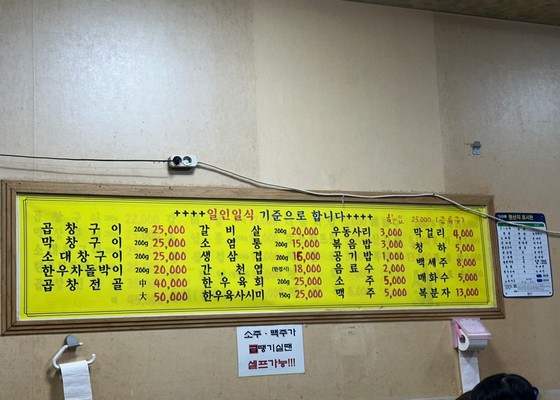 ++++일인일식 기준으로 합니다++++
25,000
곱창구이 200g 25,000 갈비살 200g 20,000 우동사리 3,000 막걸리 4,000
막창구이 200g 25,000 소염통 200g 15,000 볶음밥 3,000 청하 5,000
소대창구이 200g 25,000 생삼겹 200g 16,000 공기밥 1,000 백세주 8,000
한우차돌박이 200g 20,000 간,천엽 (한접시) 18,000 음료수 2,000 매화수 5,000
곱창전골 中 40,000 한우육회 200g 25,000 소주 5,000 복분자 13,000
大 50,000 한우육사시미 150g 25,000 맥주 5,000
원산지 표시판
소주·맥주가
급땡기실땐
셀프가능!!!